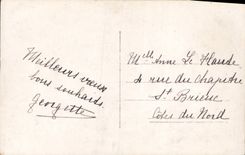 Meilleurs vœux
bons souhaits
Georgette
Mlle Anne Le
4 rue du chapitre
St Brieuc
Côtes du Nord